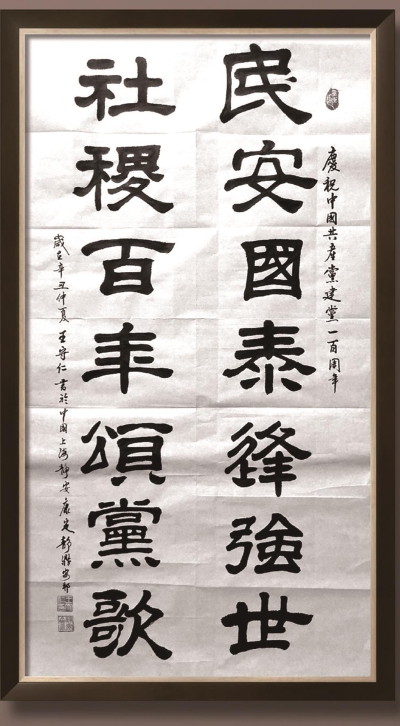 慶祝中國共產黨建黨一百周年
民安國泰逢強世
社稷百年頌黨歌
歲在辛丑仲夏王守仁書於中國上海靜安康定